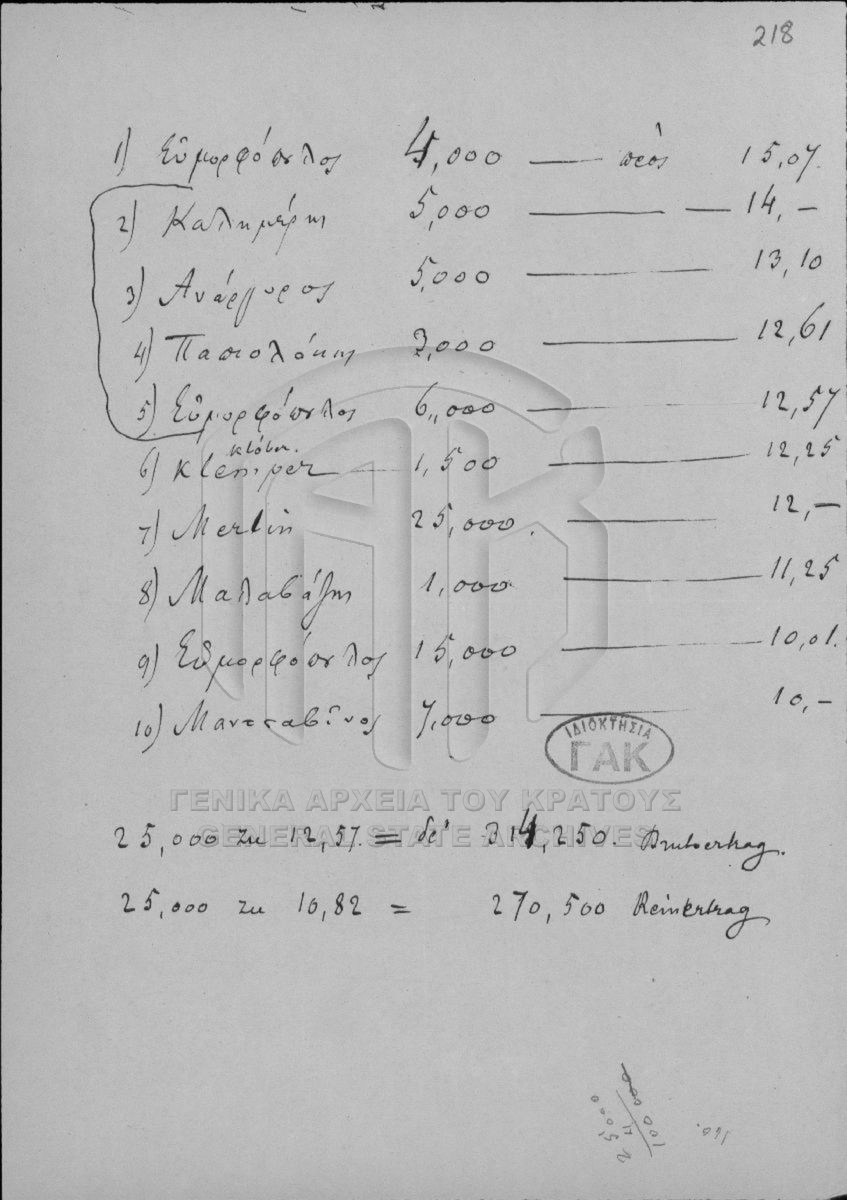 218
1) Εὐμορφόπουλος 4,000 — πρὸς 15,07.
2) Καλημέρης 5,000 — 14,—
3) Ανάργυρος 5,000 — 13,10
4) 7,000 — 12,61
5) Εὐμορφόπουλος 6,000 — 12,57
Klöber.
6) Klemper 1,500 — 12,25
7) Merlin 25,000. — 12,—
8) Μαλαβάζης 1,000 — 11,25
9) Εὐμορφόπουλος 15,000 — 10,01.
10) 7,000 — 10,—
ΙΔΙΟΚΤΗΣΙΑ
ΓΑΚ
ΓΕΝΙΚΑ ΑΡΧΕΙΑ ΤΟΥ ΚΡΑΤΟΥΣ
GENERAL STATE ARCHIVES
25,000 zu 12,57. = δρ 314,250. Bruttoertrag.
25,000 zu 10,82 = 270,500 Reinertrag
25,000
4
100 000